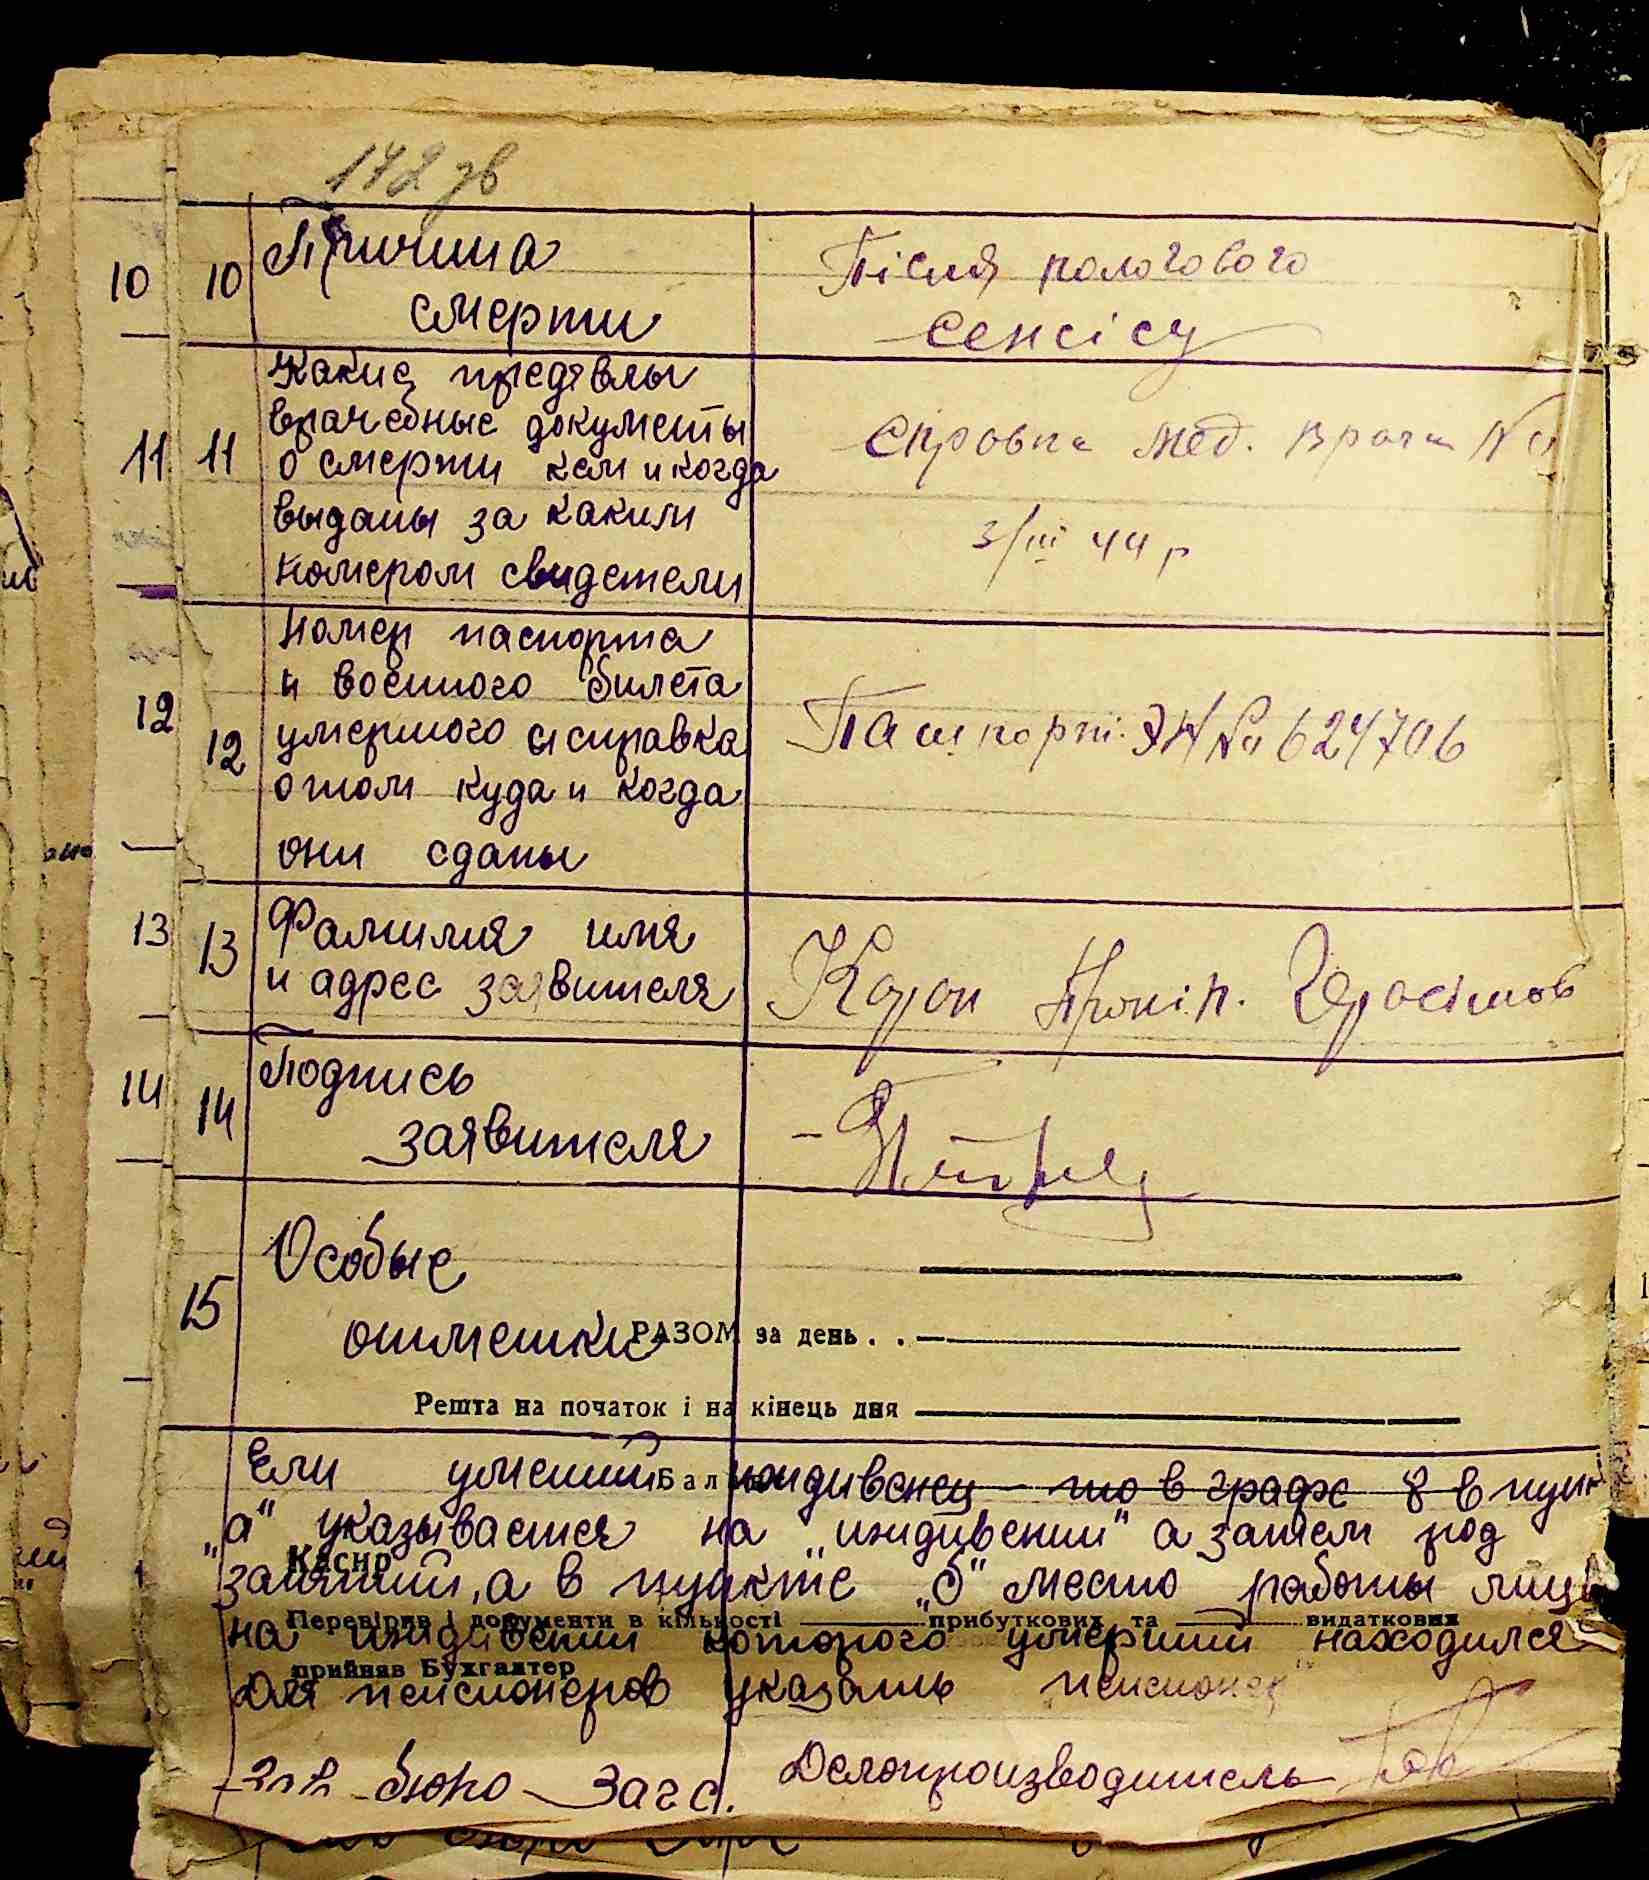 172 зв
10 10 Причина
смерти
Після пологового
сепсісу
11 11 Какие предявлы
врачебные документы
о смерти кем и когда
выданы за каким
номером свидетели
Справка мед. врача №
3/III 44 р
12 12 Номер паспорта
и военного билета
умершого и справка
о том куда и когда
они сданы
Пашпорт. ЭН № 624706
13 13 Фамилия имя
и адрес заявителя
Прокіп. Герасімов
14 14 Подпись
заявителя
15 Особые
отметки
РАЗОМ за день . .
Решта на початок і на кінець дня
Ели умеший индивенец то в графе 8 в пунк
„а“ указывается на „индивении“ а затем под
Касир
занятий, а в пункте „б“ место работы лица
Перевірив і документи в кількості прибуткових та видаткових
на индивении которого умерший находился
прийняв Бухгалтер
Для пенсионеров указать „пенсионер“
Зав бюро Загс. Делопроизводитель